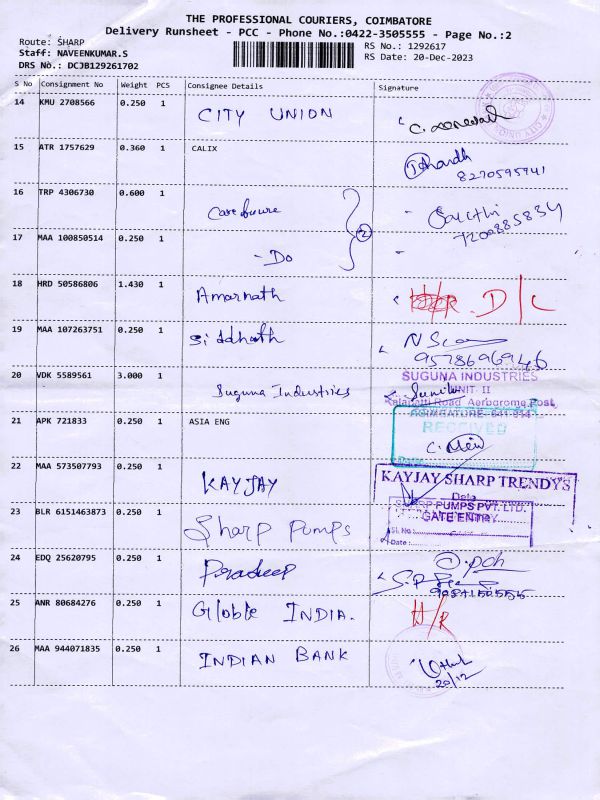 THE PROFESSIONAL COURIERS, COIMBATORE
Delivery Runsheet - PCC - Phone No.:0422-3505555 - Page No.:2
Route: SHARP
Staff: NAVEENKUMAR.S
DRS No.: DCJB129261702
RS No.: 1292617
RS Date: 20-Dec-2023
S No Consignment No Weight PCS Consignee Details Signature
14 KMU 2708566 0.250 1 CITY UNION
15 ATR 1757629 0.360 1 CALIX
8270595941
16 TRP 4306730 0.600 1
7200885834
2
17 MAA 100850514 0.250 1 - Do -
18 HRD 50586806 1.430 1 Amarnath D/C
19 MAA 107263751 0.250 1 Siddhath
9578696946
20 VDK 5589561 3.000 1 Suguna Industries
SUGUNA INDUSTRIES
UNIT. II
Road Post,
21 APK 721833 0.250 1 ASIA ENG
RECEIVED
22 MAA 573507793 0.250 1 KAYJAY
KAYJAY SHARP TRENDYS
Date
23 BLR 6151463873 0.250 1 Sharp Pumps
SHARP PUMPS PVT. LTD.
GATE ENTRY
Sl. No. :
Date :
24 EDQ 25620795 0.250 1 Pradeep
25 ANR 80684276 0.250 1 Globle INDIA. H/R
26 MAA 944071835 0.250 1 INDIAN BANK
20/12